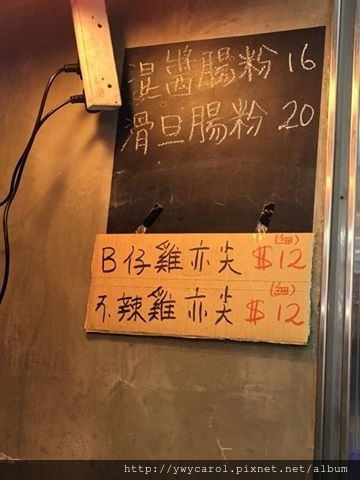 混醬腸粉 16
滑旦腸粉 20
B仔雞亦尖 $12 (細)
不辣雞亦尖 $12 (細)
http://ywycarol.pixnet.net/album